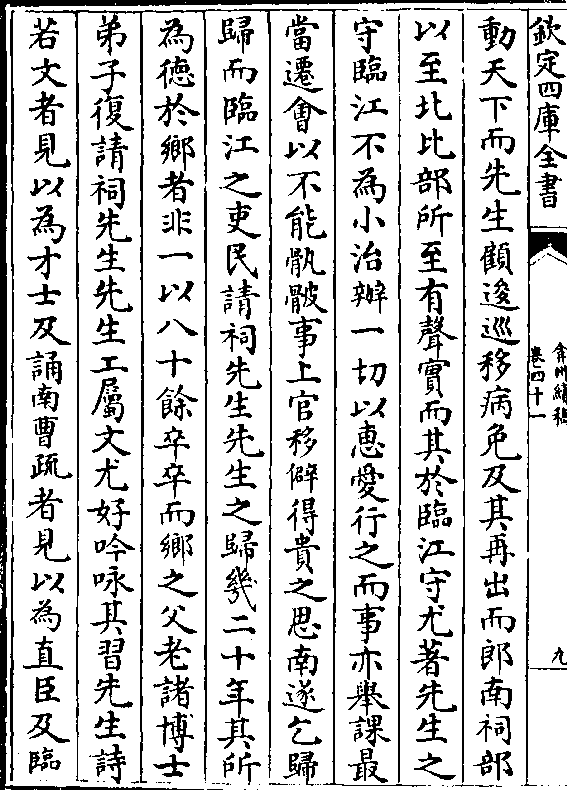 欽定四庫全書
弇州續稿
卷四十一
九
動天下而先生顧逡巡移病免及其再出而郎南祠部
以至北比部所至有聲實而其於臨江守尤著先生之
守臨江不為小治辦一切以惠愛行之而事亦舉課最
當遷會以不能骫骳事上官移僻得貴之思南遂乞歸
歸而臨江之吏民請祠先生先生之歸幾二十年其所
為德於鄉者非一以八十餘卒卒而鄉之父老諸博士
弟子復請祠先生先生工屬文尤好吟咏其習先生詩
若文者見以為才士及誦南曹疏者見以為直臣及臨